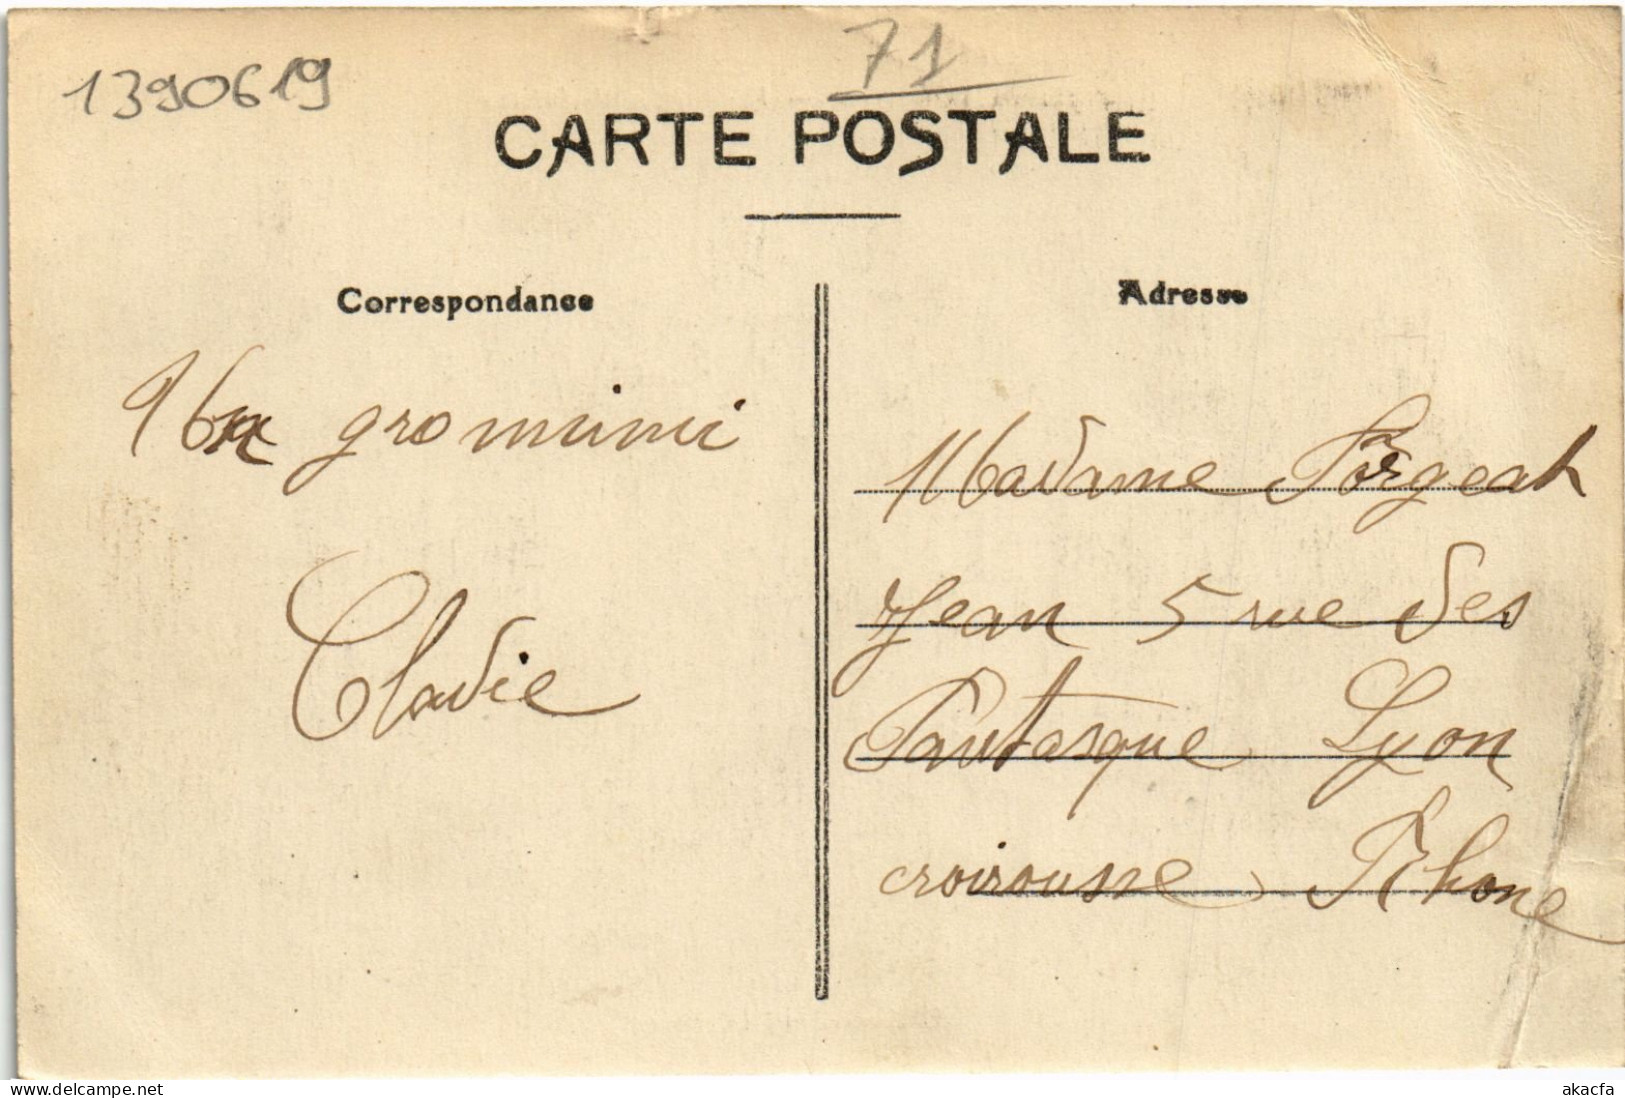 71
1390619
CARTE POSTALE
Correspondance
Adresse
gro mimi
Cladie
Madame Forgeat
Jean 5 rue des
Fantasque Lyon
croirousse Rhone
delcampe.net
akacfa